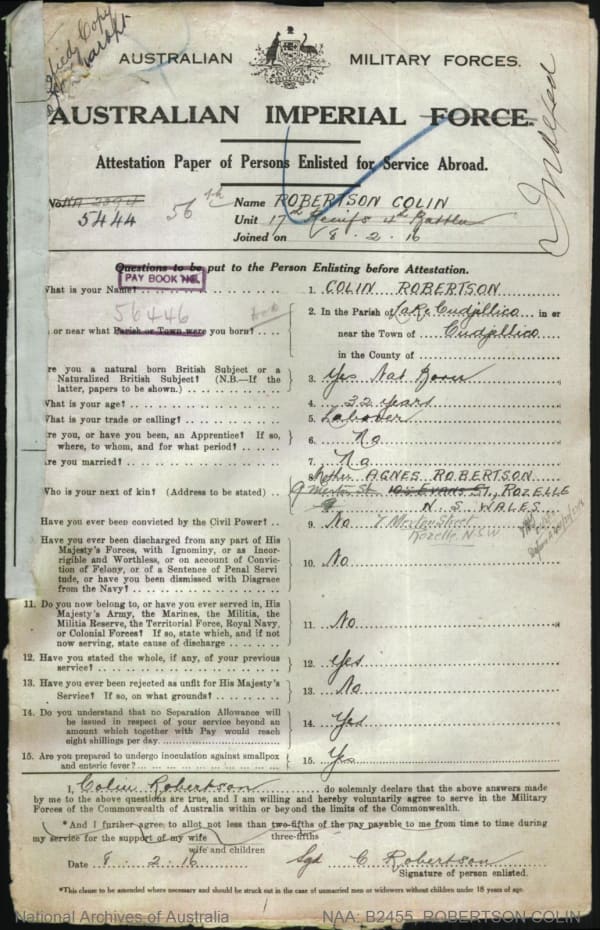 AUSTRALIAN MILITARY FORCES.
AUSTRALIAN IMPERIAL FORCE.
Indexed
Attestation Paper of Persons Enlisted for Service Abroad.
No.
5444
56th
Name ROBERTSON COLIN
Unit 17th Reinfs 4th Battln
Joined on 8.2.16
Questions to be put to the Person Enlisting before Attestation.
PAY BOOK No.
56446
What is your Name? 1. COLIN ROBERTSON
or near what Parish or Town were you born? 2. In the Parish of Lake Cudjillico in or
near the Town of Cudjillico
in the County of
Are you a natural born British Subject or a
Naturalized British Subject? (N.B.—If the
latter, papers to be shown.) 3. Yes Nat Born
What is your age? 4. 32 years
What is your trade or calling? 5. Labourer
Are you, or have you been, an Apprentice? If so,
where, to whom, and for what period? 6. No
Are you married? 7. No
Who is your next of kin? (Address to be stated) 8. Mother AGNES ROBERTSON
9 Merton St. 104 Evans St., ROZELLE
N.S. WALES
Have you ever been convicted by the Civil Power? 9. No
8 Merton Street
Rozelle. NSW
Have you ever been discharged from any part of His
Majesty's Forces, with Ignominy, or as Incor-
rigible and Worthless, or on account of Convic-
tion of Felony, or of a Sentence of Penal Servi-
tude, or have you been dismissed with Disgrace
from the Navy? 10. No
11. Do you now belong to, or have you ever served in, His
Majesty's Army, the Marines, the Militia, the
Militia Reserve, the Territorial Force, Royal Navy,
or Colonial Forces? If so, state which, and if not
now serving, state cause of discharge 11. No
12. Have you stated the whole, if any, of your previous
service? 12. yes
13. Have you ever been rejected as unfit for His Majesty's
Service? If so, on what grounds? 13. No
14. Do you understand that no Separation Allowance will
be issued in respect of your service beyond an
amount which together with Pay would reach
eight shillings per day 14. Yes
15. Are you prepared to undergo inoculation against smallpox
and enteric fever? 15. Yes
I, Colin Robertson do solemnly declare that the above answers made
by me to the above questions are true, and I am willing and hereby voluntarily agree to serve in the Military
Forces of the Commonwealth of Australia within or beyond the limits of the Commonwealth.
*And I further agree to allot not less than two-fifths of the pay payable to me from time to time during
three-fifths
my service for the support of my wife
wife and children
Date 8.2.16 Sgd C Robertson
Signature of person enlisted.
*This clause to be amended where necessary and should be struck out in the case of unmarried men or widowers without children under 18 years of age.
1
National Archives of Australia NAA: B2455, ROBERTSON COLIN